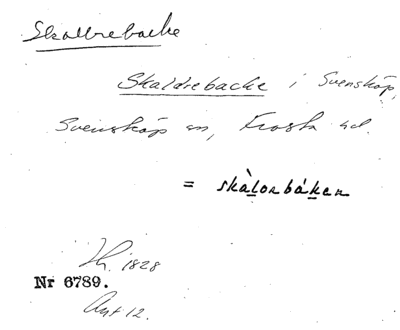 Skaldrebacke
Skaldrebacke i Svensköp,
Svensköp sn, Frosta hd.
= skàlorbáken
Hr. 1828
Nr 6789.
Ant 12.